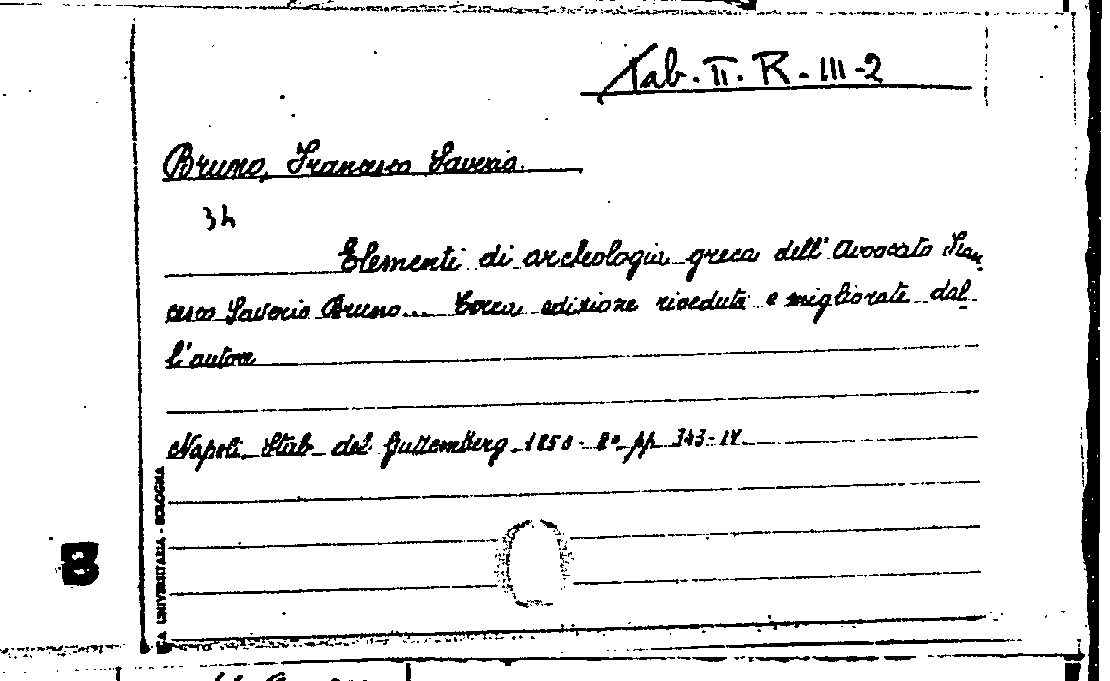 Tab. II. R. III-2
Bruno, Francesco Saverio.
34
Elementi di archeologia greca dell' Avvocato Fran
cesco Saverio Bruno... Terza edizione riveduta e migliorata dal
l'autore
Napoli, Stab. del Guttemberg. 1850. 8º pp 343-IV.
UNIVERSITARIA - BOLOGNA
B